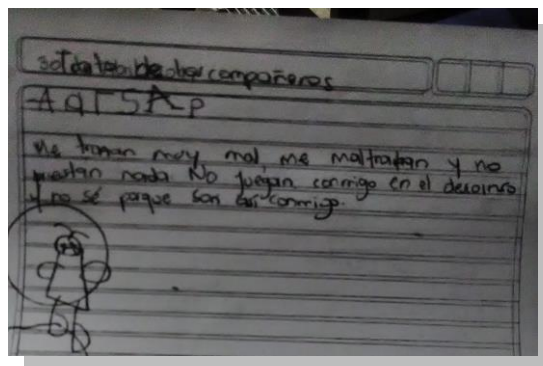 compañeros
AQTSAP
Me tratan muy mal, me maltratan y no
prestan nada No juegan conmigo en el descanso
y no sé porque son así conmigo.